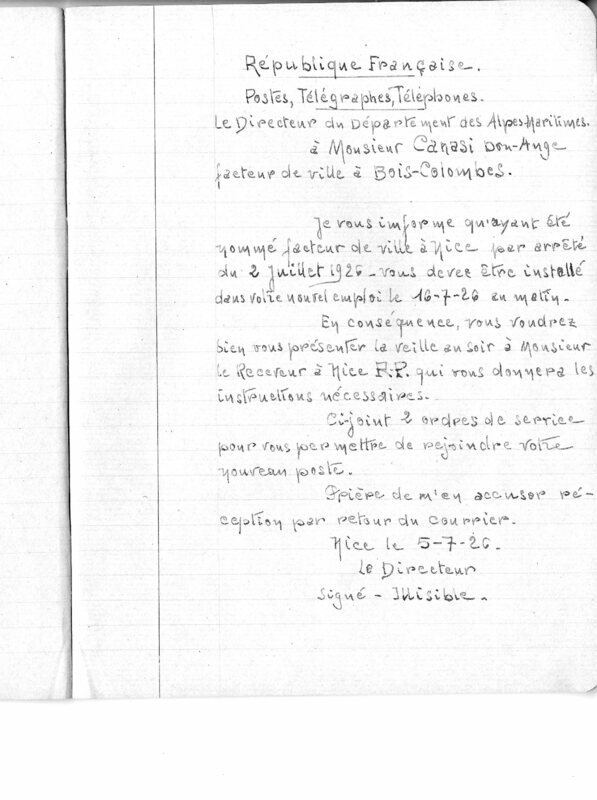 République Française.
Postes, Télégraphes, Téléphones.
Le Directeur du Département des Alpes-Maritimes.
à Monsieur Canasi Don-Ange
facteur de ville à Bois-Colombes.
Je vous informe qu'ayant été
nommé facteur de ville à Nice par arrêté
du 2 Juillet 1926 - vous devez être installé
dans votre nouvel emploi le 16-7-26 au matin.
En conséquence, vous voudrez
bien vous présenter la veille au soir à Monsieur
le Receveur à Nice R.P. qui vous donnera les
instructions nécessaires.
Ci-joint 2 ordres de service
pour vous permettre de rejoindre votre
nouveau poste.
Prière de m'en accuser ré-
ception par retour du courrier.
Nice le 5-7-26.
Le Directeur
Signé - Illisible.